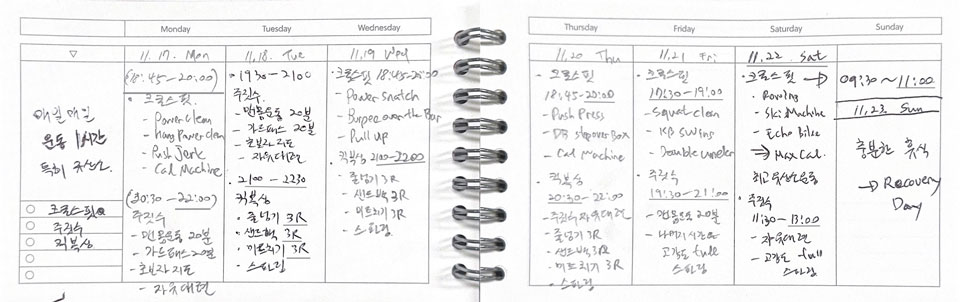 Monday
Tuesday
Wednesday
Thursday
Friday
Saturday
Sunday
▽
매일매일
운동 1시간
특히 유산소
크로스핏
주짓수
킥복싱
11.17. Mon
(18:45-20:00)
· 크로스핏.
- Power clean
- Hang Power clean
- Push Jerk
- Cal Machine
(20:30-22:00)
주짓수
- 맨몸운동 20분
- 가드패스 20분
- 초보자 지도
- 자유대련
11.18. Tue
· 1930-2100
주짓수.
- 맨몸운동 20분
- 가드패스 20분
· 초보자 지도
- 자유대련
· 2100-2230
킥복싱
· 줄넘기 3R
· 샌드백 3R
· 미트치기 3R
· 스파링
11.19 Wed
· 크로스핏 18:45-20:00
- Power snatch
- Burpee over the Bar
- Pull up
킥복싱 2100-2200
· 줄넘기 3R
· 샌드백 3R
· 미트치기 3R
- 스파링
11.20 Thu
- 크로스핏
18:45-20:00
- Push Press
- DB step over Box
- Cal Machine
킥복싱
20:30-22:00
- 주짓수 자유대련
- 줄넘기 3R
- 샌드백 3R
- 미트치기 3R
- 스파링
11.21 Fri
· 크로스핏
- Squat clean
- KB Swing
- Double under
주짓수
19:30-21:00
- 맨몸운동 20분
- 나머지 시간에
고강도 full
스파링
11.22. Sat
· 크로스핏 →
- Rowing
- Ski Machine
- Echo Bike
→ Max Cal.
최고 유산소운동
· 주짓수
11:30-13:00
- 자유대련
- 고강도 full
스파링
09:30~11:00
11.23. Sun
충분한 휴식
→ Recovery
Day